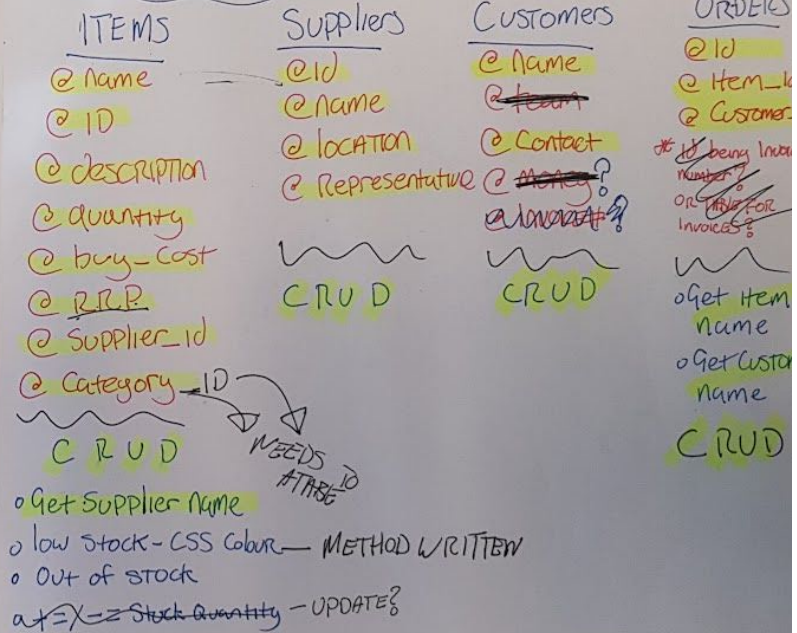 ITEMS
@ name
@ ID
@ description
@ quantity
@ buy_cost
@ R.R.P.
@ Supplier_id
@ Category_ID
NEEDS
A TABLE
CRUD
o Get Supplier name
o low stock - CSS Colour — METHOD WRITTEN
o Out of stock
Stock Quantity - UPDATE?
Suppliers
@ id
@ name
@ location
@ Representative
CRUD
Customers
@ name
@ team
@ Contact
@ money?
CRUD
ORDERS
@ Id
@ Item_Id
@ Customer_
* id being Invoi
number?
OR TABLE FOR
Invoices?
o Get item
name
o Get Custom
name
CRUD